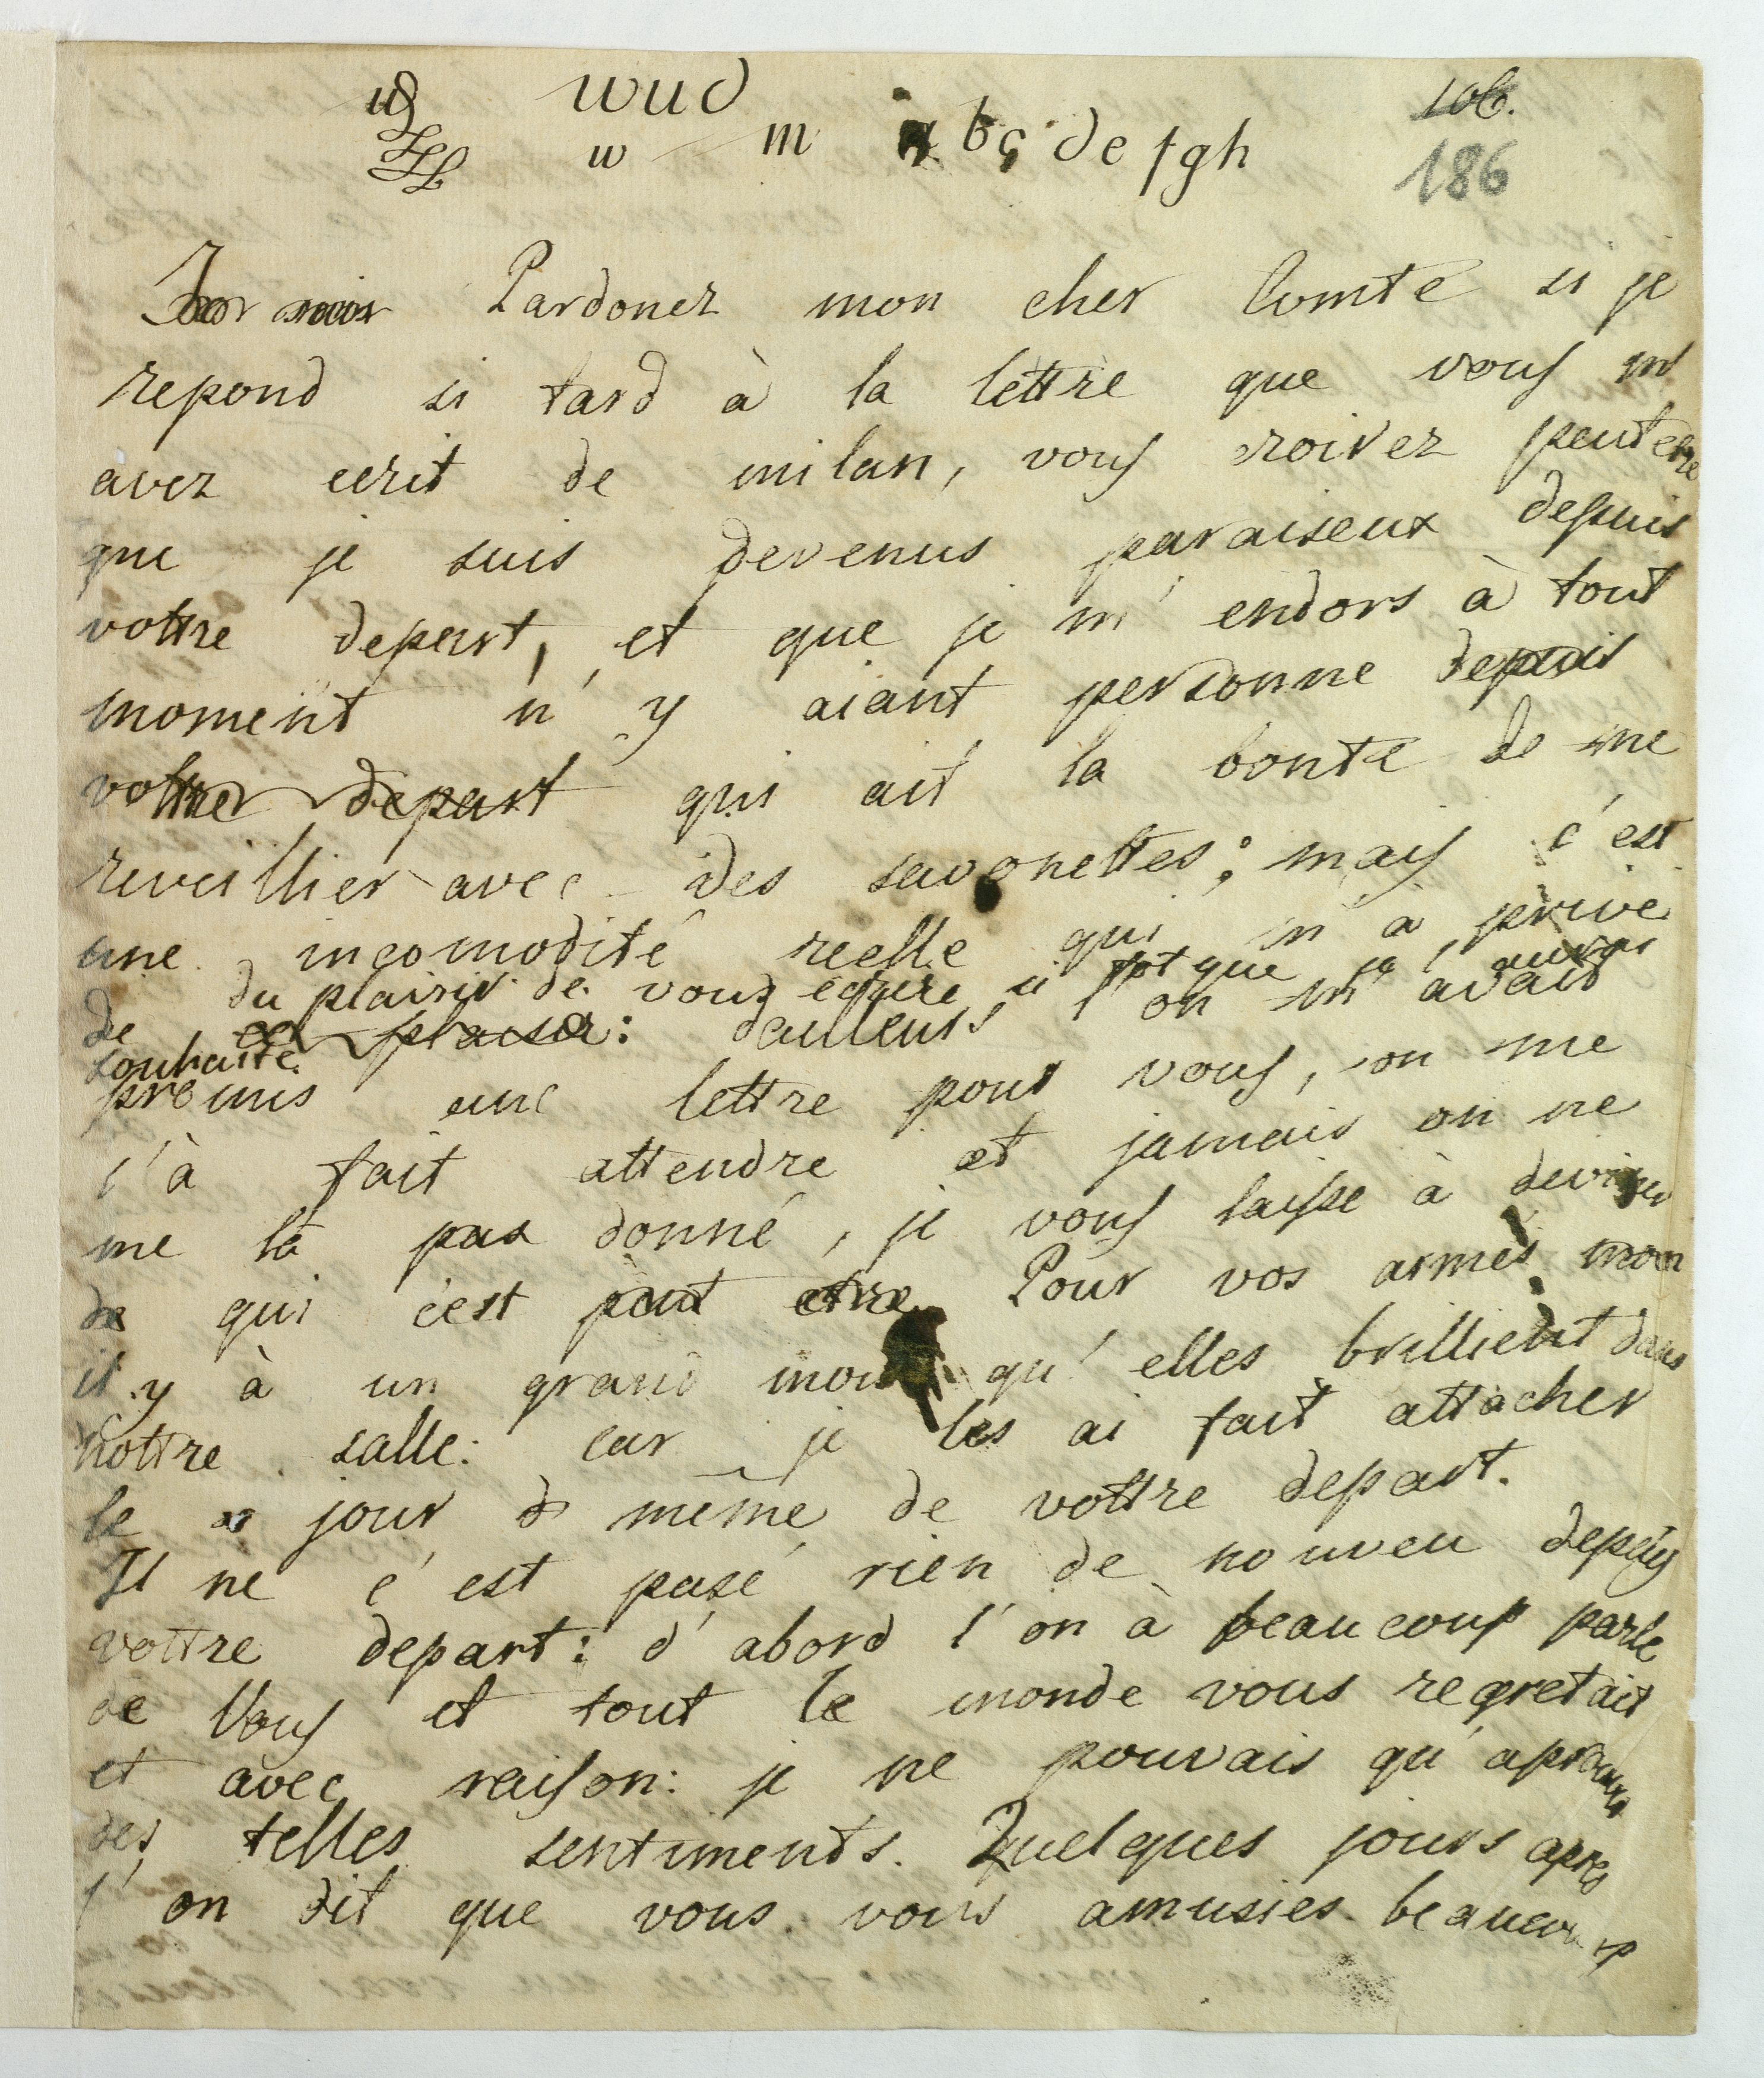 wud
w m a b c d e f g h
106.
186
Pardonez mon cher Comte si je
repond si tard à la lettre que vous m'
avez ecrit de milan, vous croirez peutetre
que je suis devenus paraiseux depuis
vottre depart, et que je m'endors à tout
moment n'y aiant personne depuis
vottre depart qui ait la bonté de me
reveillier avec des savonettes; mais c'est
une incomodité reelle qui m'a privé
du plaisir de vous ecrire si tot que j'aurai
de ce plaisir: dailleurs l'on m'avait
souhaité.
promis une lettre pour vous, on me
l'à fait attendre et jamais on ne
me la pas donné, je vous laisse à deviner
de qui c'est peut etre. Pour vos armes mon
il y à un grand mois qu'elles brillient dans
nottre salle: car je les ai fait attacher
le jour de même de vottre depart.
Il ne c'est pasé rien de nouveu depuis
vottre depart: d'abord l'on à beaucoup parlé
de Vous et tout le monde vous regretait
et avec raison: je ne pouvais qu'aprouver
des telles sentiments. Quelques jours apres
l'on dit que vous vous amusies beaucoup